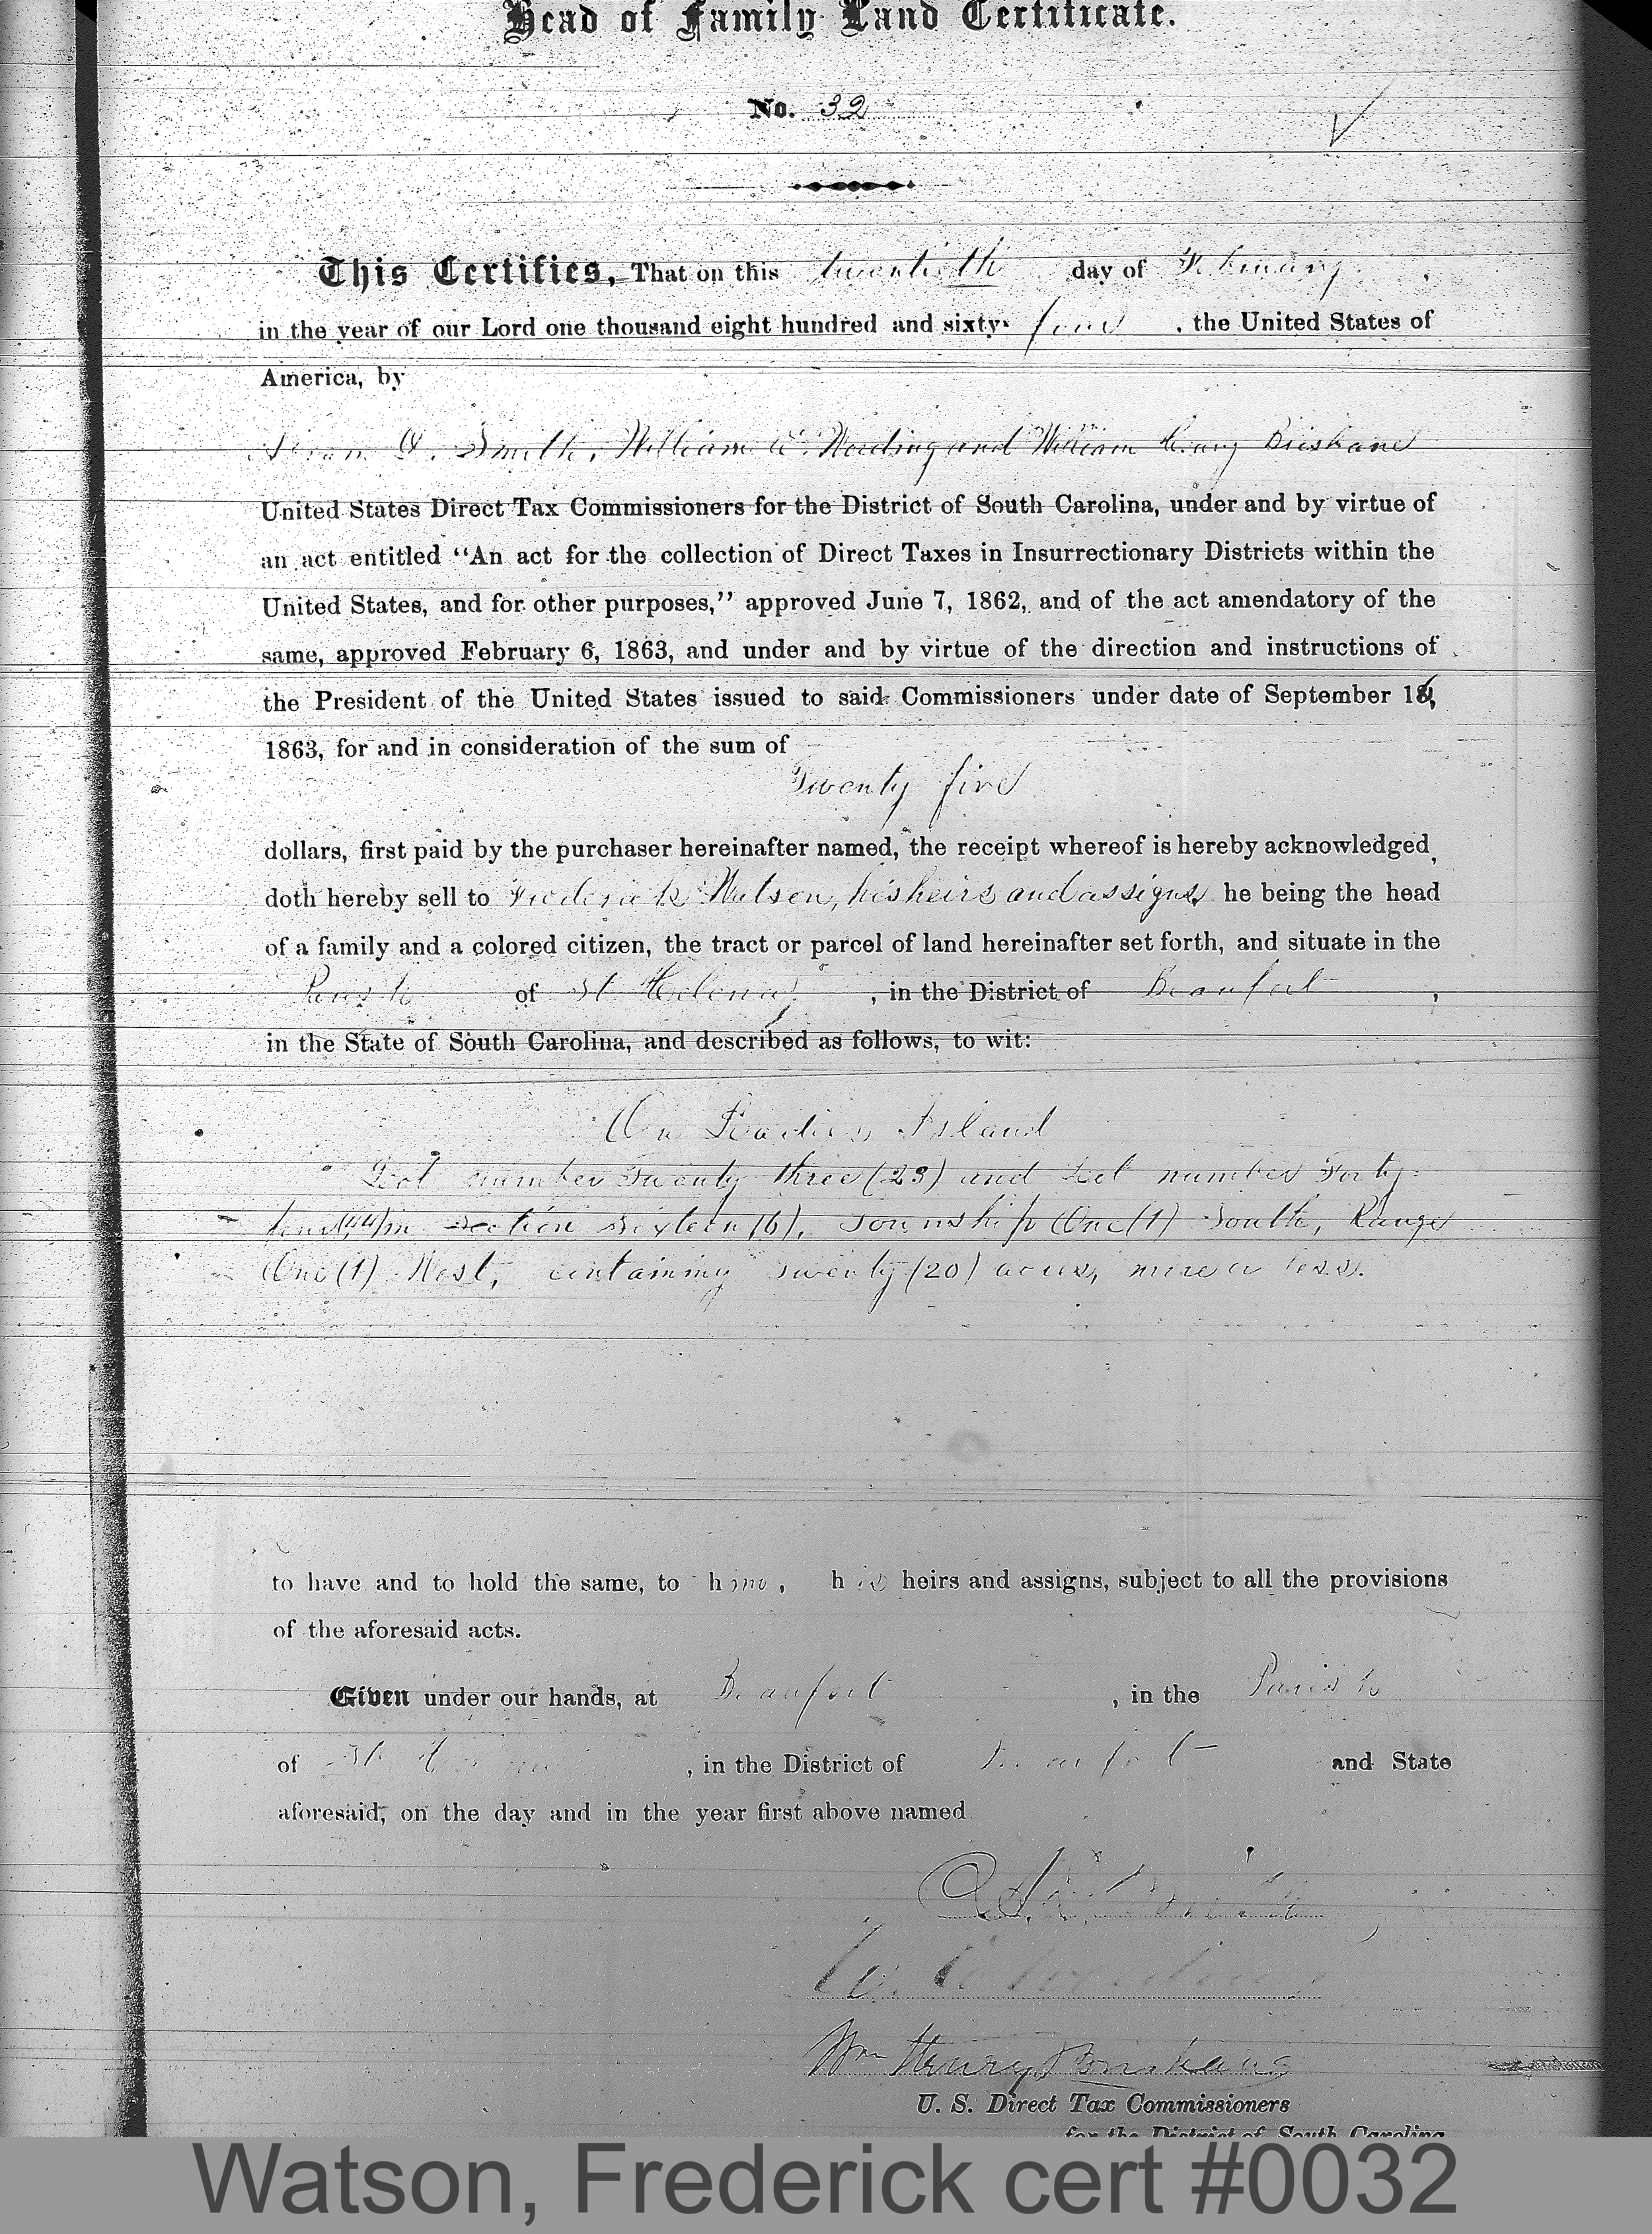 Head of Family Land Certificate.
No. 32
This Certifies, That on this twentieth day of February,
in the year of our Lord one thousand eight hundred and sixty-four, the United States of
America, by
Smith, William E. Wording and William Henry Brisbane
United States Direct Tax Commissioners for the District of South Carolina, under and by virtue of
an act entitled “An act for the collection of Direct Taxes in Insurrectionary Districts within the
United States, and for other purposes,” approved June 7, 1862, and of the act amendatory of the
same, approved February 6, 1863, and under and by virtue of the direction and instructions of
the President of the United States issued to said Commissioners under date of September 16,
1863, for and in consideration of the sum of
Twenty five
dollars, first paid by the purchaser hereinafter named, the receipt whereof is hereby acknowledged,
doth hereby sell to Frederick Watson, his heirs and assigns, he being the head
of a family and a colored citizen, the tract or parcel of land hereinafter set forth, and situate in the
Parish of St Helena, in the District of Beaufort,
in the State of South Carolina, and described as follows, to wit:
On Ladies Island
Lot number Twenty three (23) and Lot number Forty
four (44) in Section Sixteen (16), Township One (1) South, Range
One (1) West, containing twenty (20) acres, more or less.
to have and to hold the same, to him, his heirs and assigns, subject to all the provisions
of the aforesaid acts.
Given under our hands, at Beaufort, in the Parish
of St Helena, in the District of Beaufort and State
aforesaid, on the day and in the year first above named.
Smith
W. E. Wording
Wm Henry Brisbane
U. S. Direct Tax Commissioners
for the District of South Carolina
Watson, Frederick cert #0032